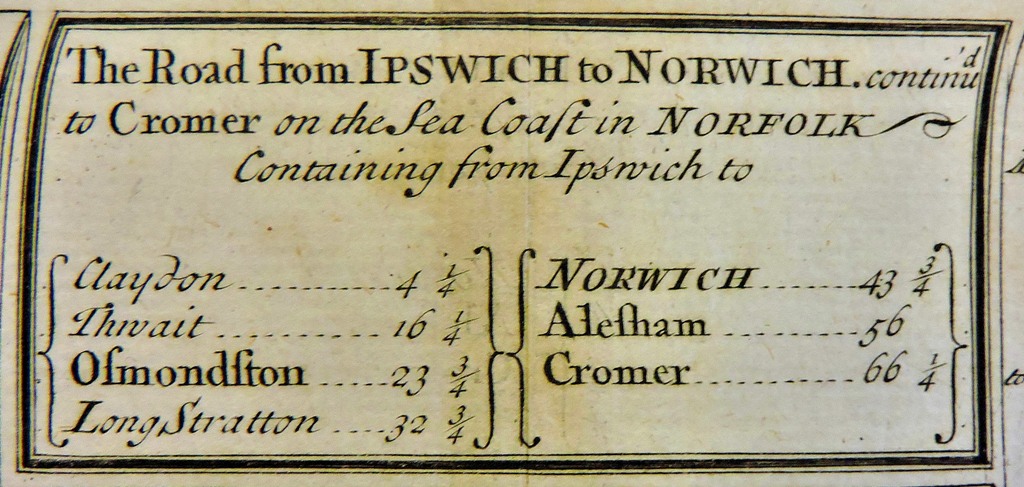 The Road from IPSWICH to NORWICH. continu'd
to Cromer on the Sea Coaſt in NORFOLK
Containing from Ipswich to
Claydon............4 1/4
Thwait............16 1/4
Oſmondſton.....23 3/4
Long Stratton ....32 3/4
NORWICH.......43 3/4
Aleſham .........56
Cromer............66 1/4
to